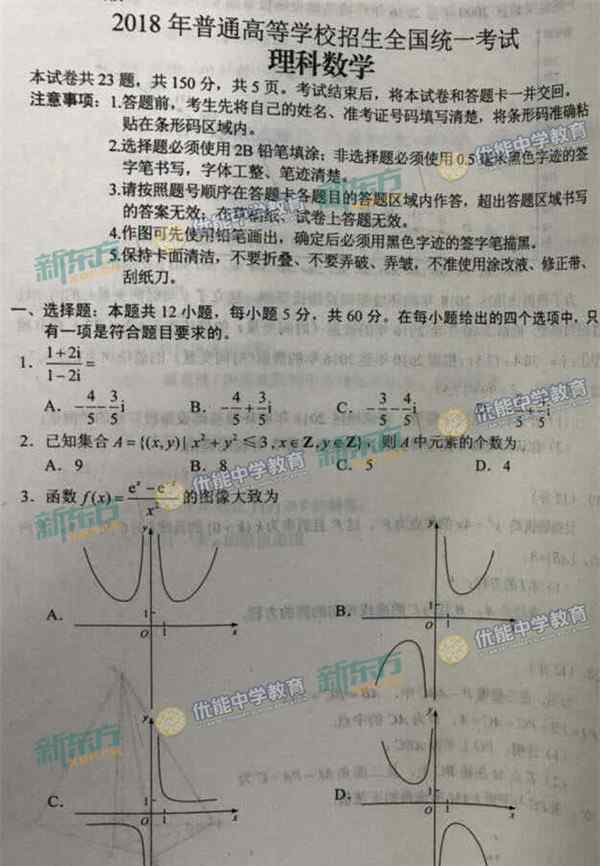 2018年普通高等学校招生全国统一考试
理科数学
本试卷共23题,共150分,共5页。考试结束后,将本试卷和答题卡一并交回。
注意事项:1.答题前,考生先将自己的姓名、准考证号码填写清楚,将条形码准确粘
贴在条形码区域内。
2.选择题必须使用2B铅笔填涂;非选择题必须使用0.5毫米黑色字迹的签
字笔书写,字体工整、笔迹清楚。
3.请按照题号顺序在答题卡各题目的答题区域内作答,超出答题区域书写
的答案无效;在草稿纸、试卷上答题无效。
4.作图可先使用铅笔画出,确定后必须用黑色字迹的签字笔描黑。
5.保持卡面清洁,不要折叠、不要弄破、弄皱,不准使用涂改液、修正带、
刮纸刀。
一、选择题:本题共12小题,每小题5分,共60分。在每小题给出的四个选项中,只
有一项是符合题目要求的。
1. (1+2i)/(1−2i)=
A. −4/5−3/5i B. −4/5+3/5i C. −3/5−4/5i
2. 已知集合A={(x,y)|x²+y²≤3,x∈Z,y∈Z},则A中元素的个数为
A. 9 B. 8 C. 5 D. 4
3. 函数f(x)=(eˣ−e⁻ˣ)/x²的图像大致为
A. y 1 O 1 x
B. y 1 O 1 x
C. y 1 O 1 x
D. y 1 O 1 x
新东方
XDF.CN
优能中学教育